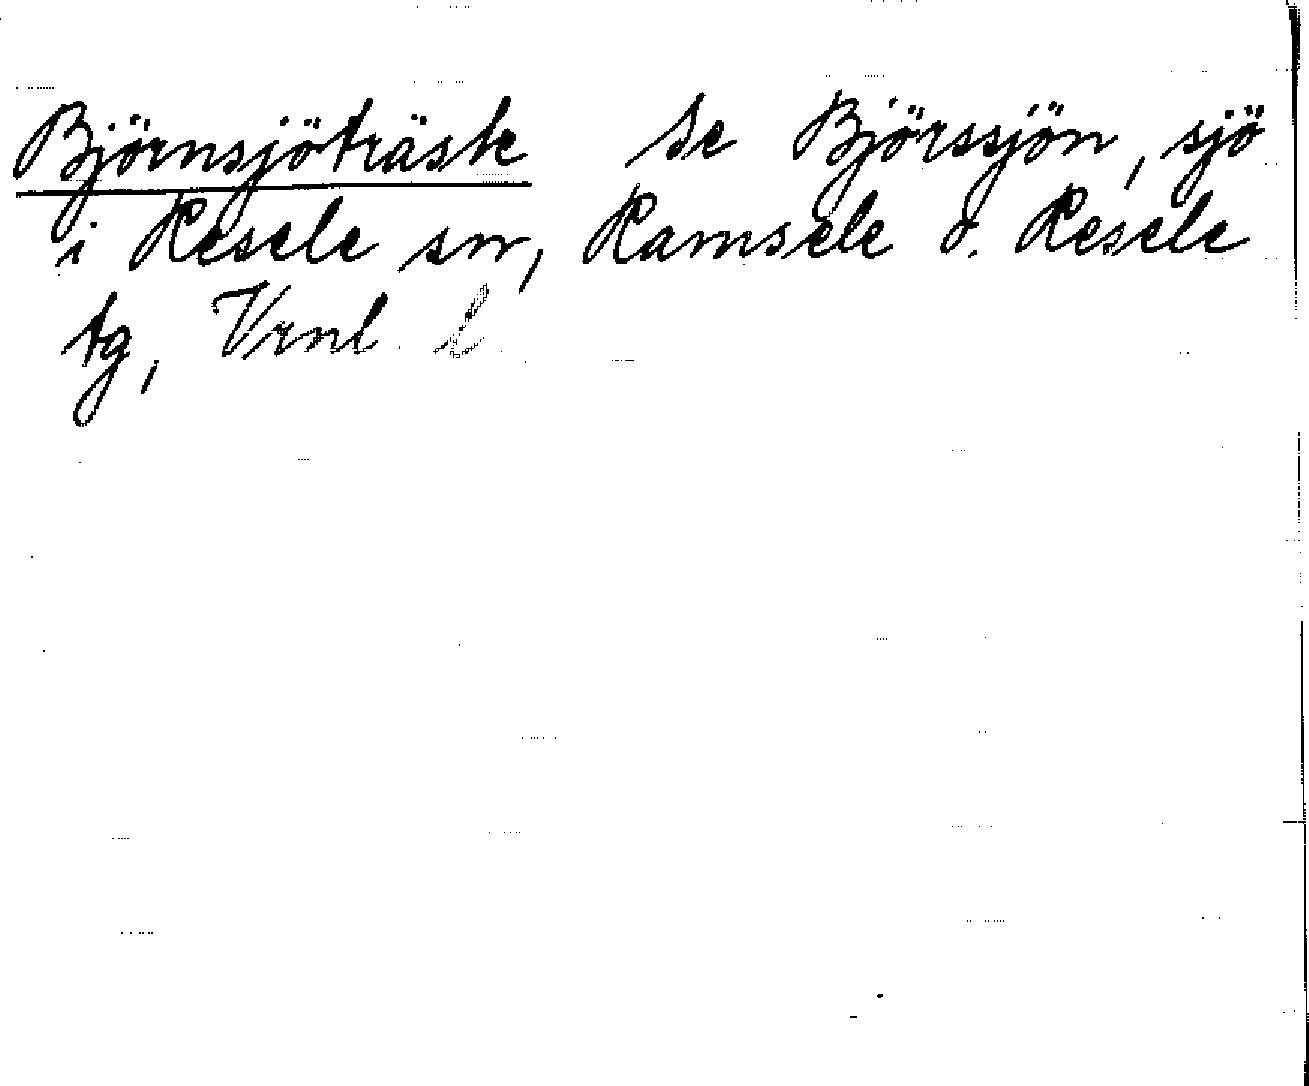 Björnsjöträsk se Björssjön, sjö
i Resele sn, Ramsele o. Resele
tg, Vrnl. l